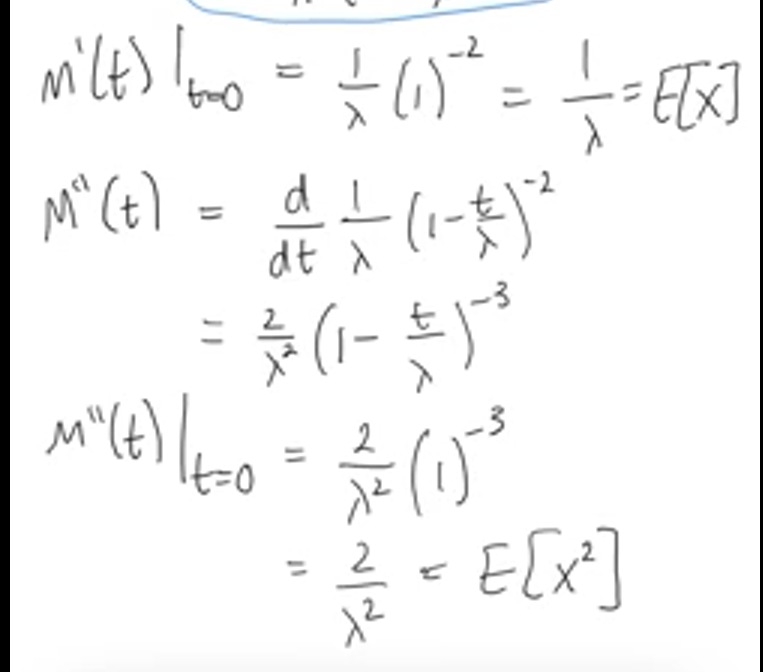 M'(t) |_{t=0} = 1/λ (1)^{-2} = 1/λ = E[X]
M''(t) = d/dt 1/λ (1 - t/λ)^{-2}
= 2/λ² (1 - t/λ)^{-3}
M''(t) |_{t=0} = 2/λ² (1)^{-3}
= 2/λ² = E[X²]